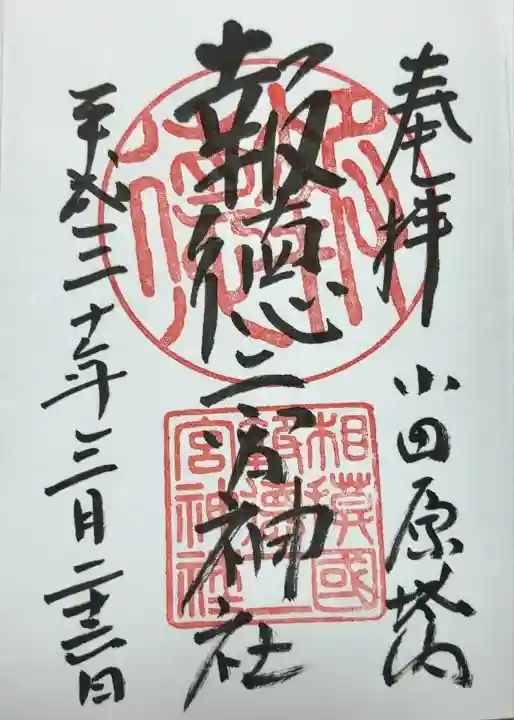 奉拝
小田原城内
報徳二宮神社
相模國
報徳二
宮神社
平成三十年三月二十三日